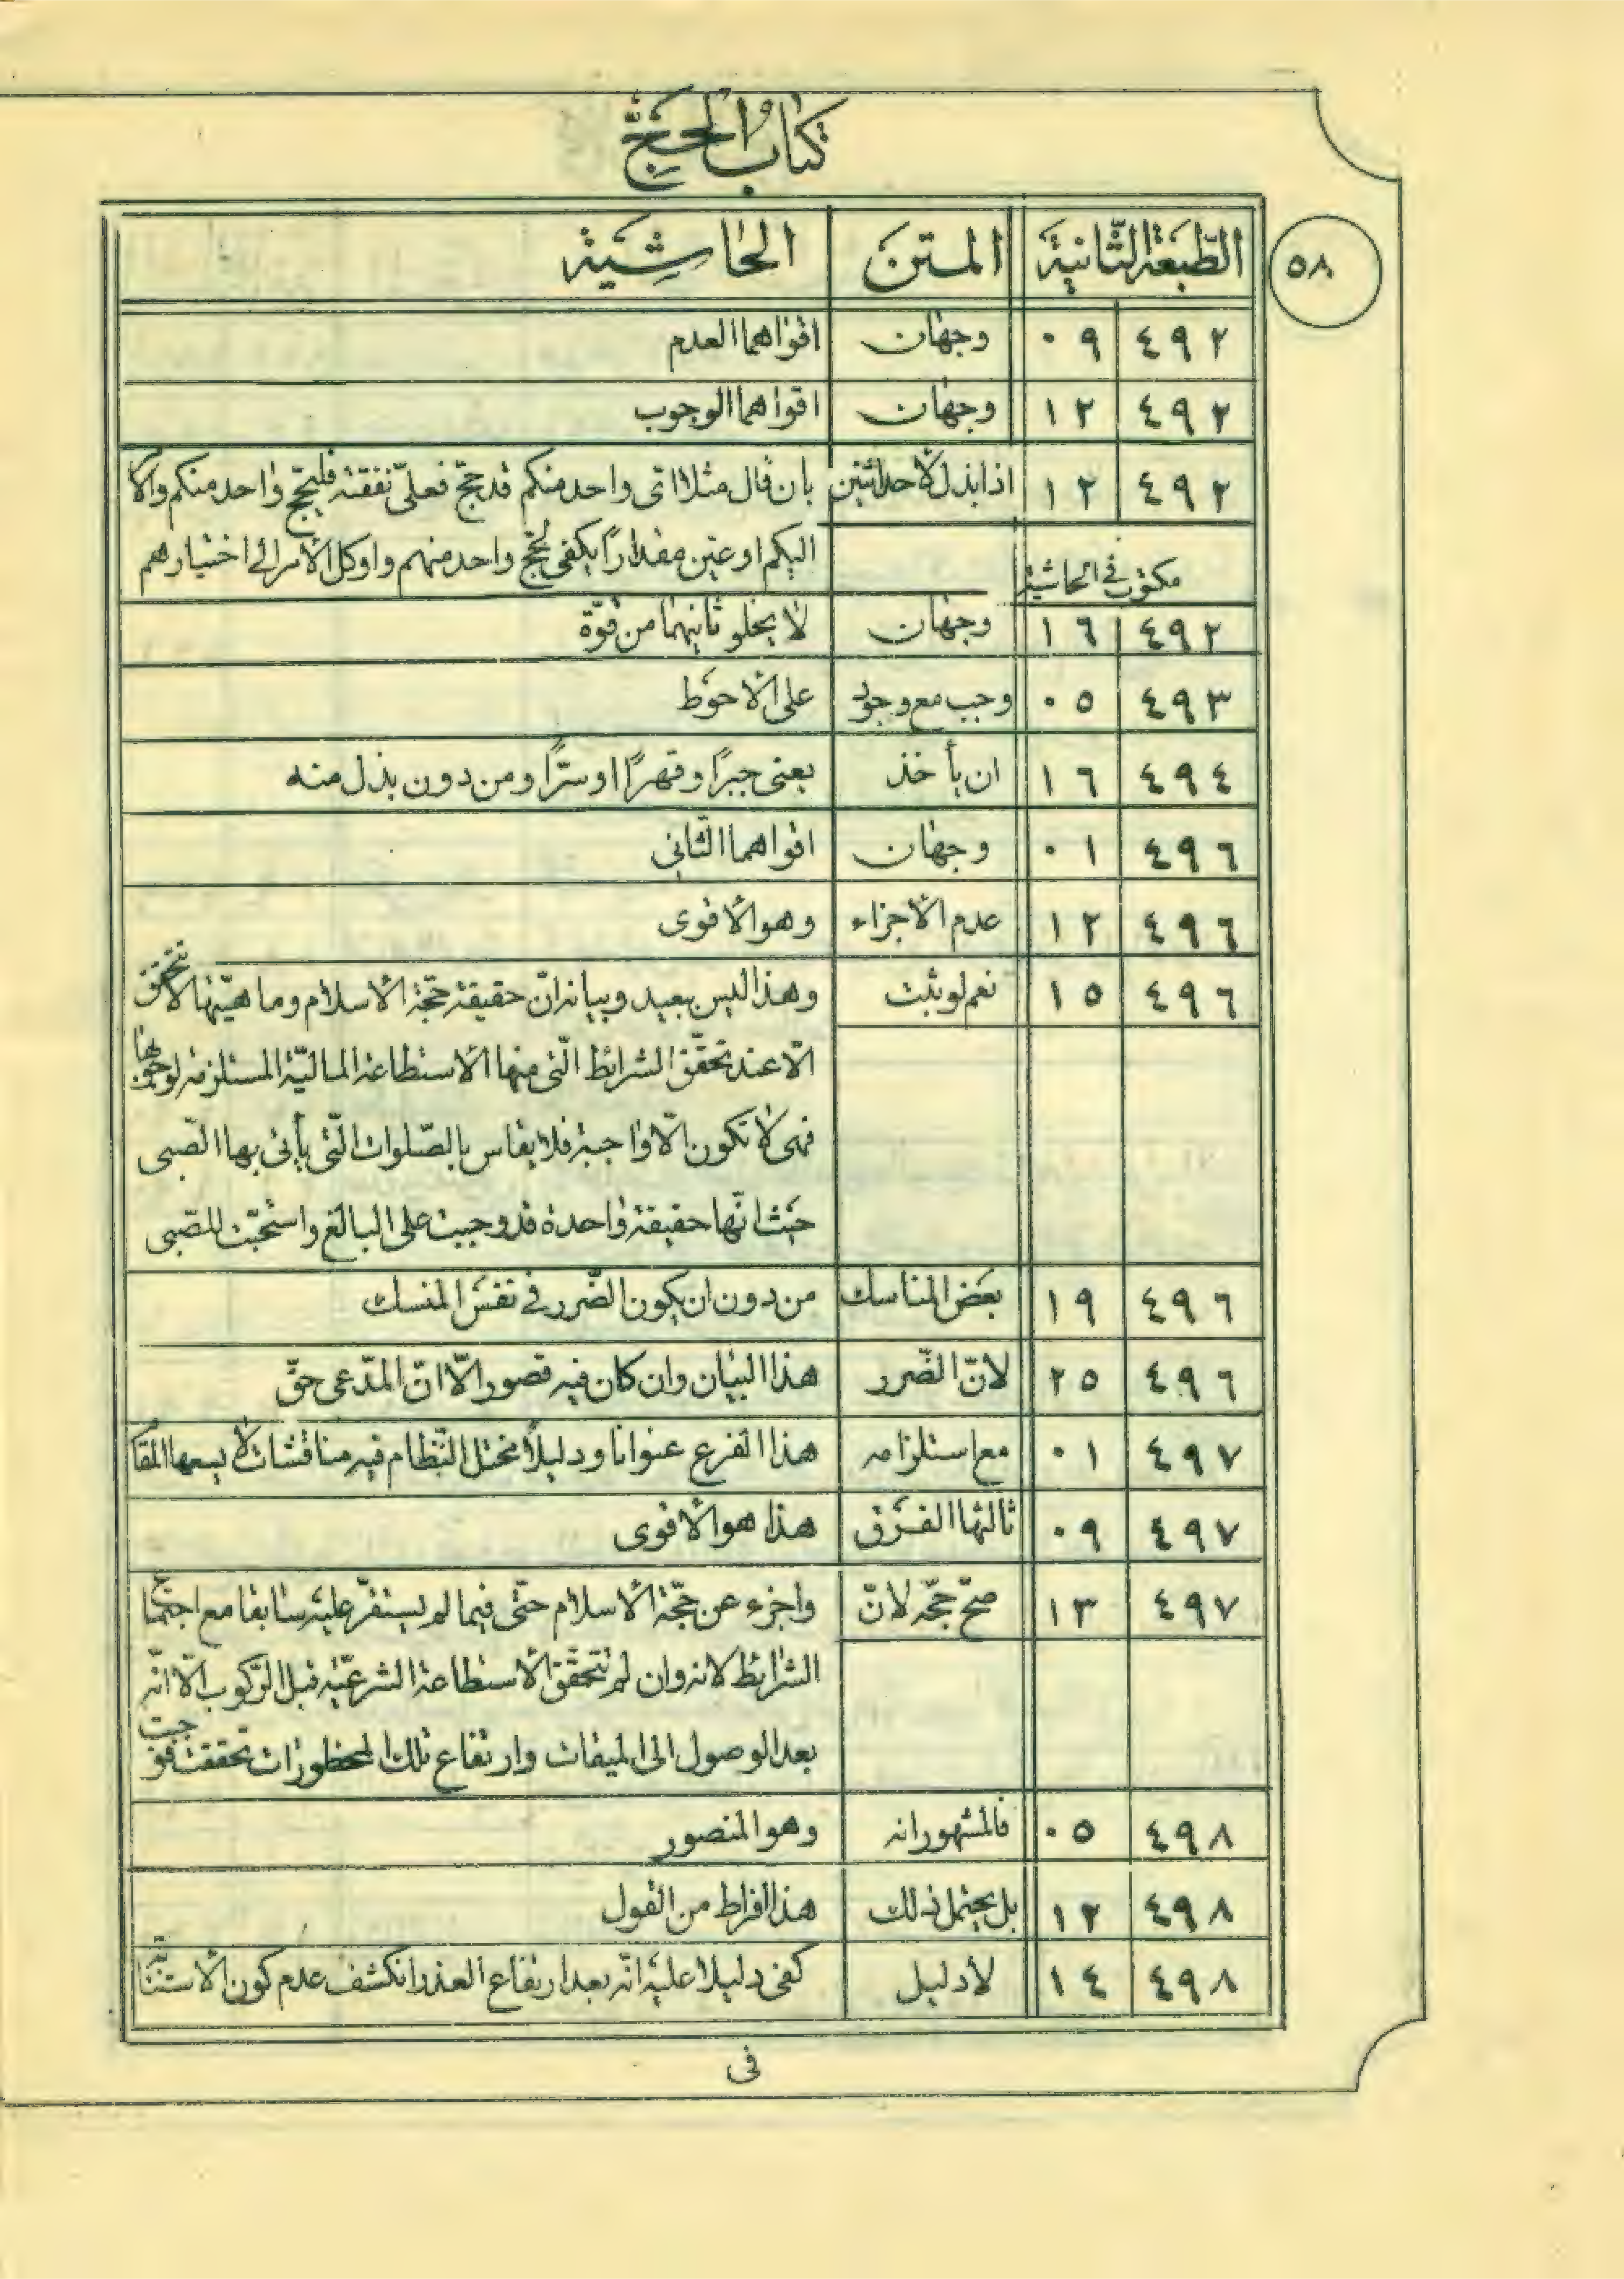 كتاب الحج
٥٨
الطبعة الثانية المتن الحاشية
٤٩٢ ٠٩ وجهان اقواهما العدم
٤٩٢ ١٢ وجهان اقواهما الوجوب
٤٩٢ ١٢ اذا بذل لاحد اثنين بان قال مثلا اتى واحد منكم قد حج فعلىّ نفقته فليحج واحد منكم والا
مكتوب في الحاشية اليكم او عيّن مقدارًا يكفى لحج واحد منهم واوكل الأمر الى اختيارهم
٤٩٢ ١٦ وجهان لا يخلو ثانيهما من قوّة
٤٩٣ ٠٥ وجب مع وجود على الاحوَط
٤٩٤ ١٦ ان يأخذ يعنى جبرًا وقهرًا او سرًّا ومن دون بذل منه
٤٩٦ ٠١ وجهان اقواهما الثّانى
٤٩٦ ١٢ عدم الاجزاء وهو الاقوى
٤٩٦ ١٥ نعم لو ثبت وهذا ليس ببعيد وبيانه انّ حقيقة حجّة الاسلام وماهيّتها لا تتحقّق
الّا عند تحقّق الشرائط الّتى منها الاستطاعة الماليّة المستلزمة لوجوبها
فهى لا تكون الّا واجبة فلا يقاس بالصّلوات الّتى يأتى بها الصّبى
حيث انّها حقيقة واحدة قد وجبت على البالغ واستحبّت للصّبى
٤٩٦ ١٩ بعض المناسك من دون ان يكون الضّرر فى نفس المنسك
٤٩٦ ٢٥ لانّ الضّرر هذا البيان وان كان فيه قصور الّا انّ المدّعى حقّ
٤٩٧ ٠١ مع استلزامه هذا الفرع عنوانا ودليلًا مختل النّظام فيه مناقشات لا يسعها المقا
٤٩٧ ٠٩ ثالثها الفرق هذا هو الاقوى
٤٩٧ ١٣ صحّ حجّه لانّ واجزء عن حجّة الاسلام حتّى فيما لم يستقرّ عليه سابقا مع اجتماع
الشرائط لانه وان لم تتحقّق الاستطاعة الشرعيّة قبل الرّكوب الّا انّه
بعد الوصول الى الميقات وارتفاع تلك المحظورات تحققت فوجبت
٤٩٨ ٠٥ فالمشهور انه وهو المنصور
٤٩٨ ١٢ بل يحتمل ذلك هذا افراط من القول
٤٩٨ ١٤ لا دليل كفى دليلا عليه انّه بعد ارتفاع العذر انكشف عدم كون الاستنابة
فى